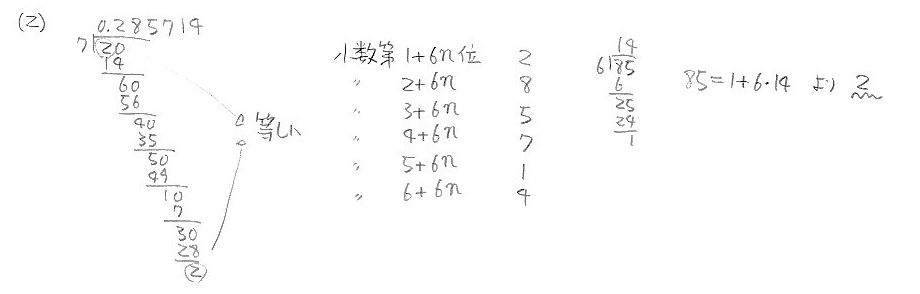 (2)
0.285714
7 20
14
60
56
40
35
50
49
10
7
30
28
2
等しい
小数第 1+6n 位 2
〃 2+6n 8
〃 3+6n 5
〃 4+6n 7
〃 5+6n 1
〃 6+6n 4
14
6 85
6
25
24
1
85=1+6・14 より 2